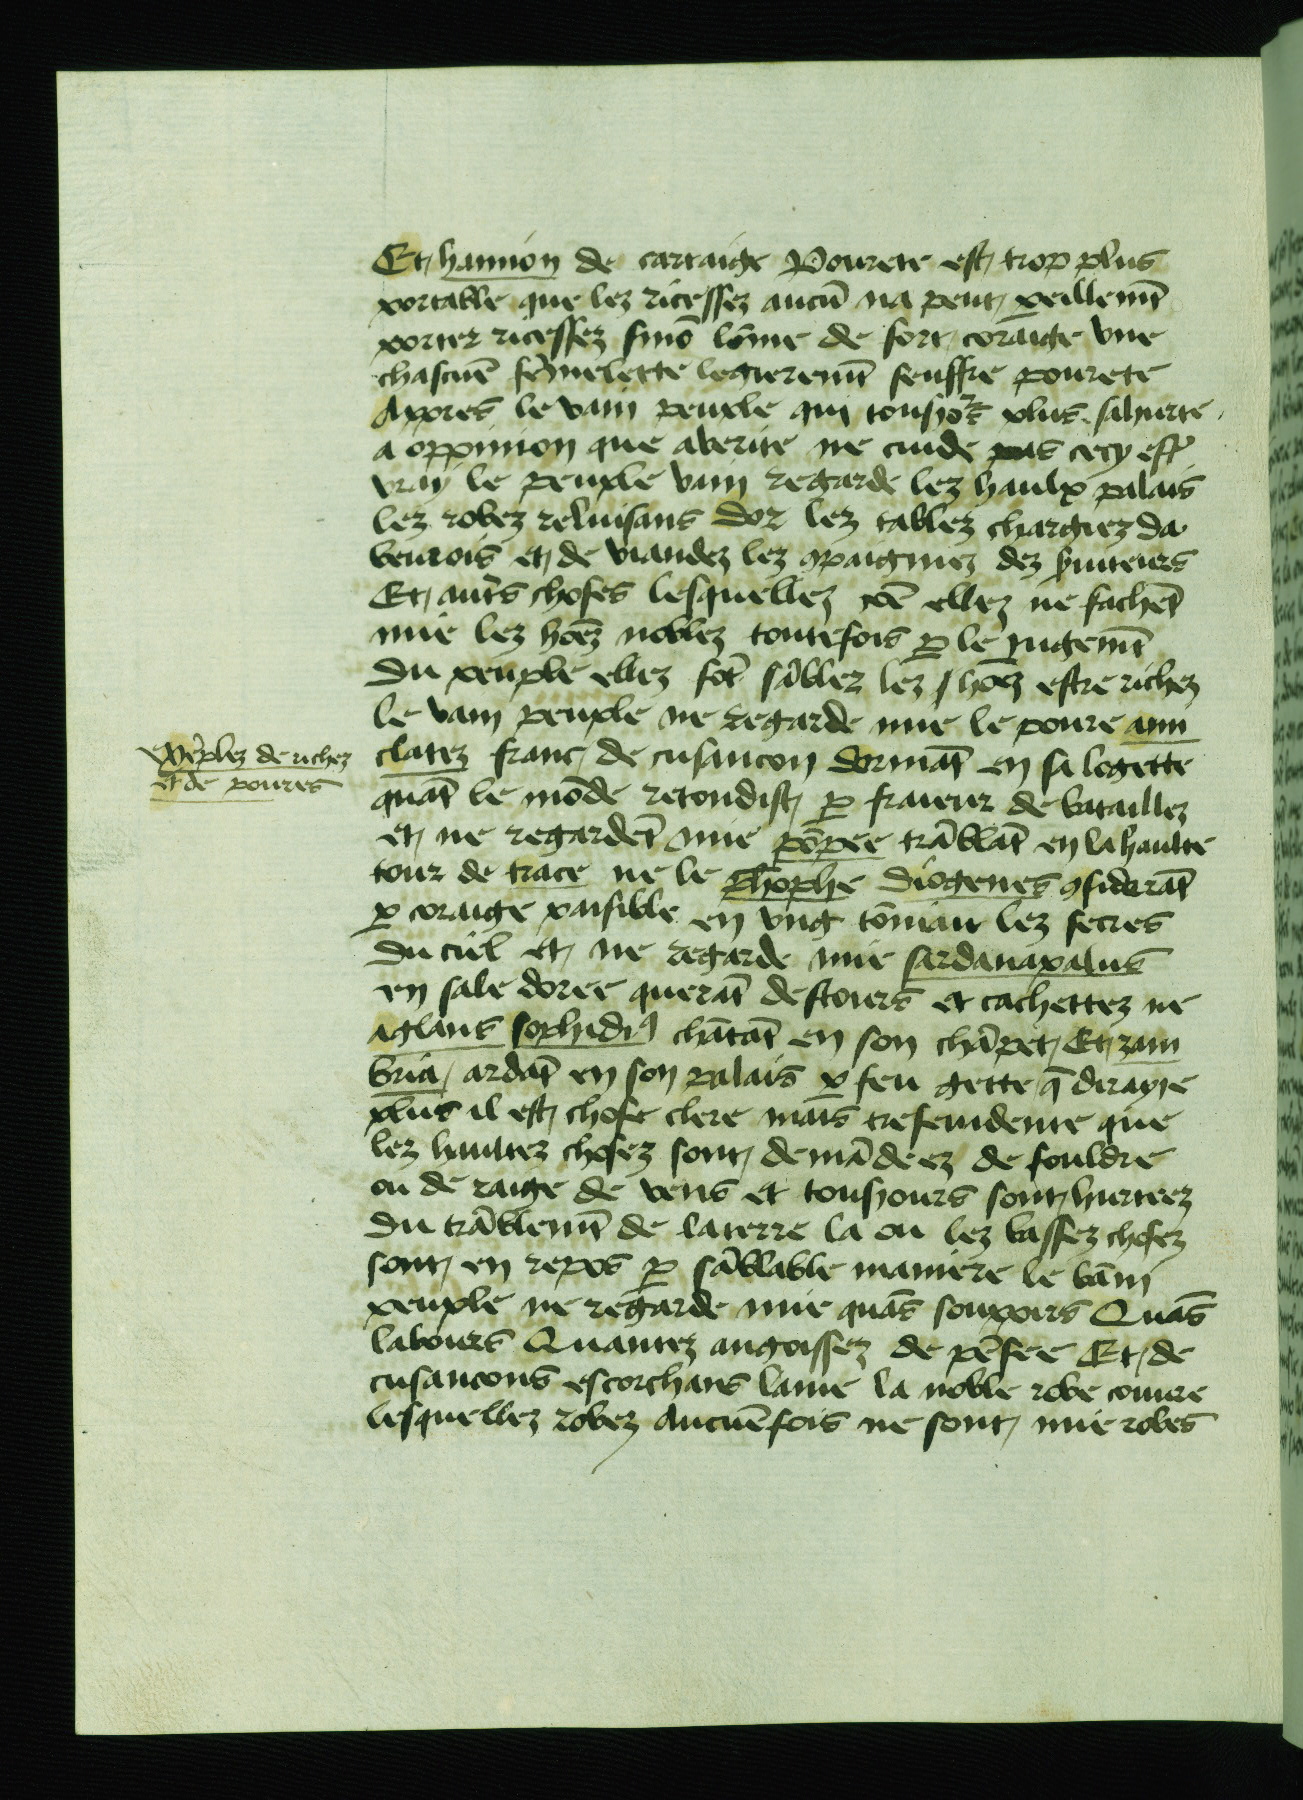 Et hannion de cartaige Pourete est trop plus
portable que lez ricessez aucū na peut peillemt̄
porter ricessez sinō lōme de fort coraige vne
chascūe fēmelette legieremt̄ seuffre pourete
Apres le vain peuple qui tousiors plus sahurte
a oppinion que a verite ne cuide pas cecy estr̄
vray le peuple vain regarde lez haulx palais
lez robez reluisans dor lez tablez chargiez da
beurois et de viandez lez ꝯpaigniez dez ſuiteurs
Et autrs̄ choses lesquellez cōe ellez ne fachēt
mie lez hōez noblez toutefois ꝑ le iugemt̄
du peuple ellez fōt sāblez lez hōez estre richez
le vain peuple ne regarde mie le poure ami
clatez franc de cusancon dormāt en sa logette
quāt le mōde retondist ꝑ fraieur de bataillez
et ne regardēt mie pōpee trāblāt en la haulte
tour de trace ne le phōphe diogenes ꝯsiderāt
ꝑ coraige paisible en vng tōniau lez secres
du ciel et ne regarde mie sardanapalus
en sale doree querāt destours et cachettez ne
aglaus sophidiꝰ chātāt en son chāpet Et zam
bria ardāt en son palais ꝑ feu gette q̄ diraye
plus il est chose clere mais tresevidente que
lez haultez chosez sont demādeez de fouldre
ou de raige de vens et tousiours sont hurteez
du trāblemt̄ de la terre la ou lez bassez chosez
sont en repos ꝑ sāblable maniere le vain
peuple ne regarde mie quās souspoirs Quās
labours Quantez angoissez de pēsee Et de
cusancons escorchans lame la noble robe couure
lesquellez robez aucūefois ne sont mie robes
Exēplez de richez
et de poures